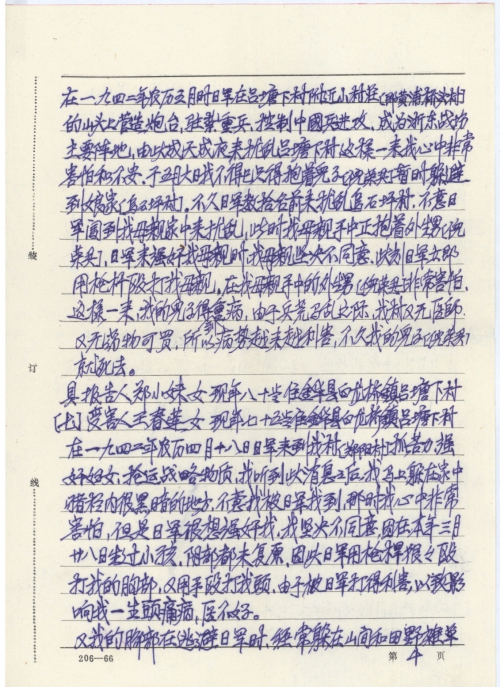 在一九四二年农历五月时日军在吕塘下村附近小村经(即黄浦桥头村)
的山头上营造炮台,驻兵重兵,控制中国反进攻,成为浙东战场
主要阵地,由以成天成夜来扰乱吕塘下村这样一来我心中非常
害怕和不安,于五月大日我不得已只得抱着儿子(倪荣荣)暂时躲避
到娘家(追石坪村),不久日军数拾台前来扰乱追石坪村,不意日
军闯到我母亲家中来扰乱,此时我母亲手中正抱着外甥(倪
荣荣),日军来强奸我母亲时,我母亲坚决不同意,此刻日军立即
用枪杆殴打我母亲,在我母亲手中的外甥(倪荣荣)非常害怕,
这样一来,我的儿子得重病,由于兵荒马乱之际,我村又无医师
又无药物可买,所以病势越来越利害,不久我的男子(倪荣荣)
前就死去。
具报告人郑小妹,女,现年八十岁住金华县白龙桥镇吕塘下村
[七]受害人王春莲,女,现年七十五岁住金华县白龙桥镇吕塘下村
在一九四二年农历四月十八日日军来到我村抓苦力,强
奸妇女,抢运战略物质,我听到此消息之后,我马上躲在家中
暗径内很黑暗的地方,不意我被日军找到,那时我心中非常
害怕,但是日军很想强奸我,我坚决不同意,因在本年三月
廿八日生过小孩,阴部都未复原,因此日军用枪杆狠々殴
打我的胸部,又用手殴打我头,由于被日军打得利害,以致影
响我一生头痛病,医不好。
又我的胸部在逃避日军时,经常躲在山间和田野雄草
装
订
线
206—66
第 4 页